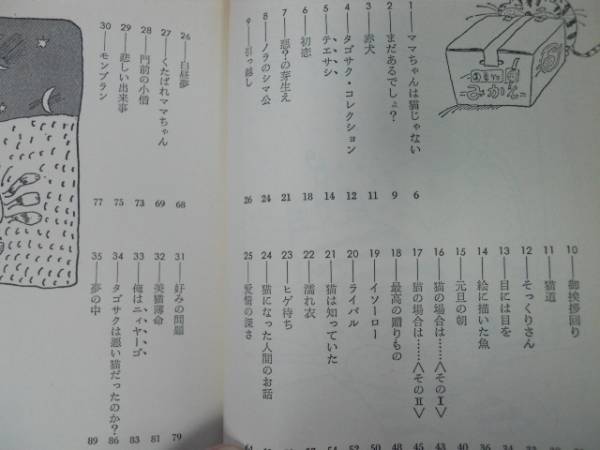 1——ママちゃんは猫じゃない 6
2——まだあるでしょ? 9
3——赤犬 11
4——タゴサク・コレクション 12
5——テエサシ 14
6——初恋 18
7——悪?の芽生え 21
8——ノラのシマ公 24
9——引っ越し 26
10——御挨拶回り
11——猫道
12——そっくりさん
13——目には目を
14——絵に描いた魚
15——元旦の朝 40
16——猫の場合は……〈そのⅠ〉 43
17——猫の場合は……〈そのⅡ〉 45
18——最高の贈りもの 48
19——イソーロー 50
20——ライバル 52
21——猫は知っていた 54
22——濡れ衣
23——ヒゲ待ち
24——猫になった人間のお話
25——愛情の深さ
26——白昼夢 68
27——くたばれママちゃん 69
28——門前の小僧 73
29——悲しい出来事 75
30——モンブラン 77
31——好みの問題 79
32——美猫薄命 81
33——俺はニィヤーゴ 83
34——タゴサクは悪い猫だったのか? 86
35——夢の中 89